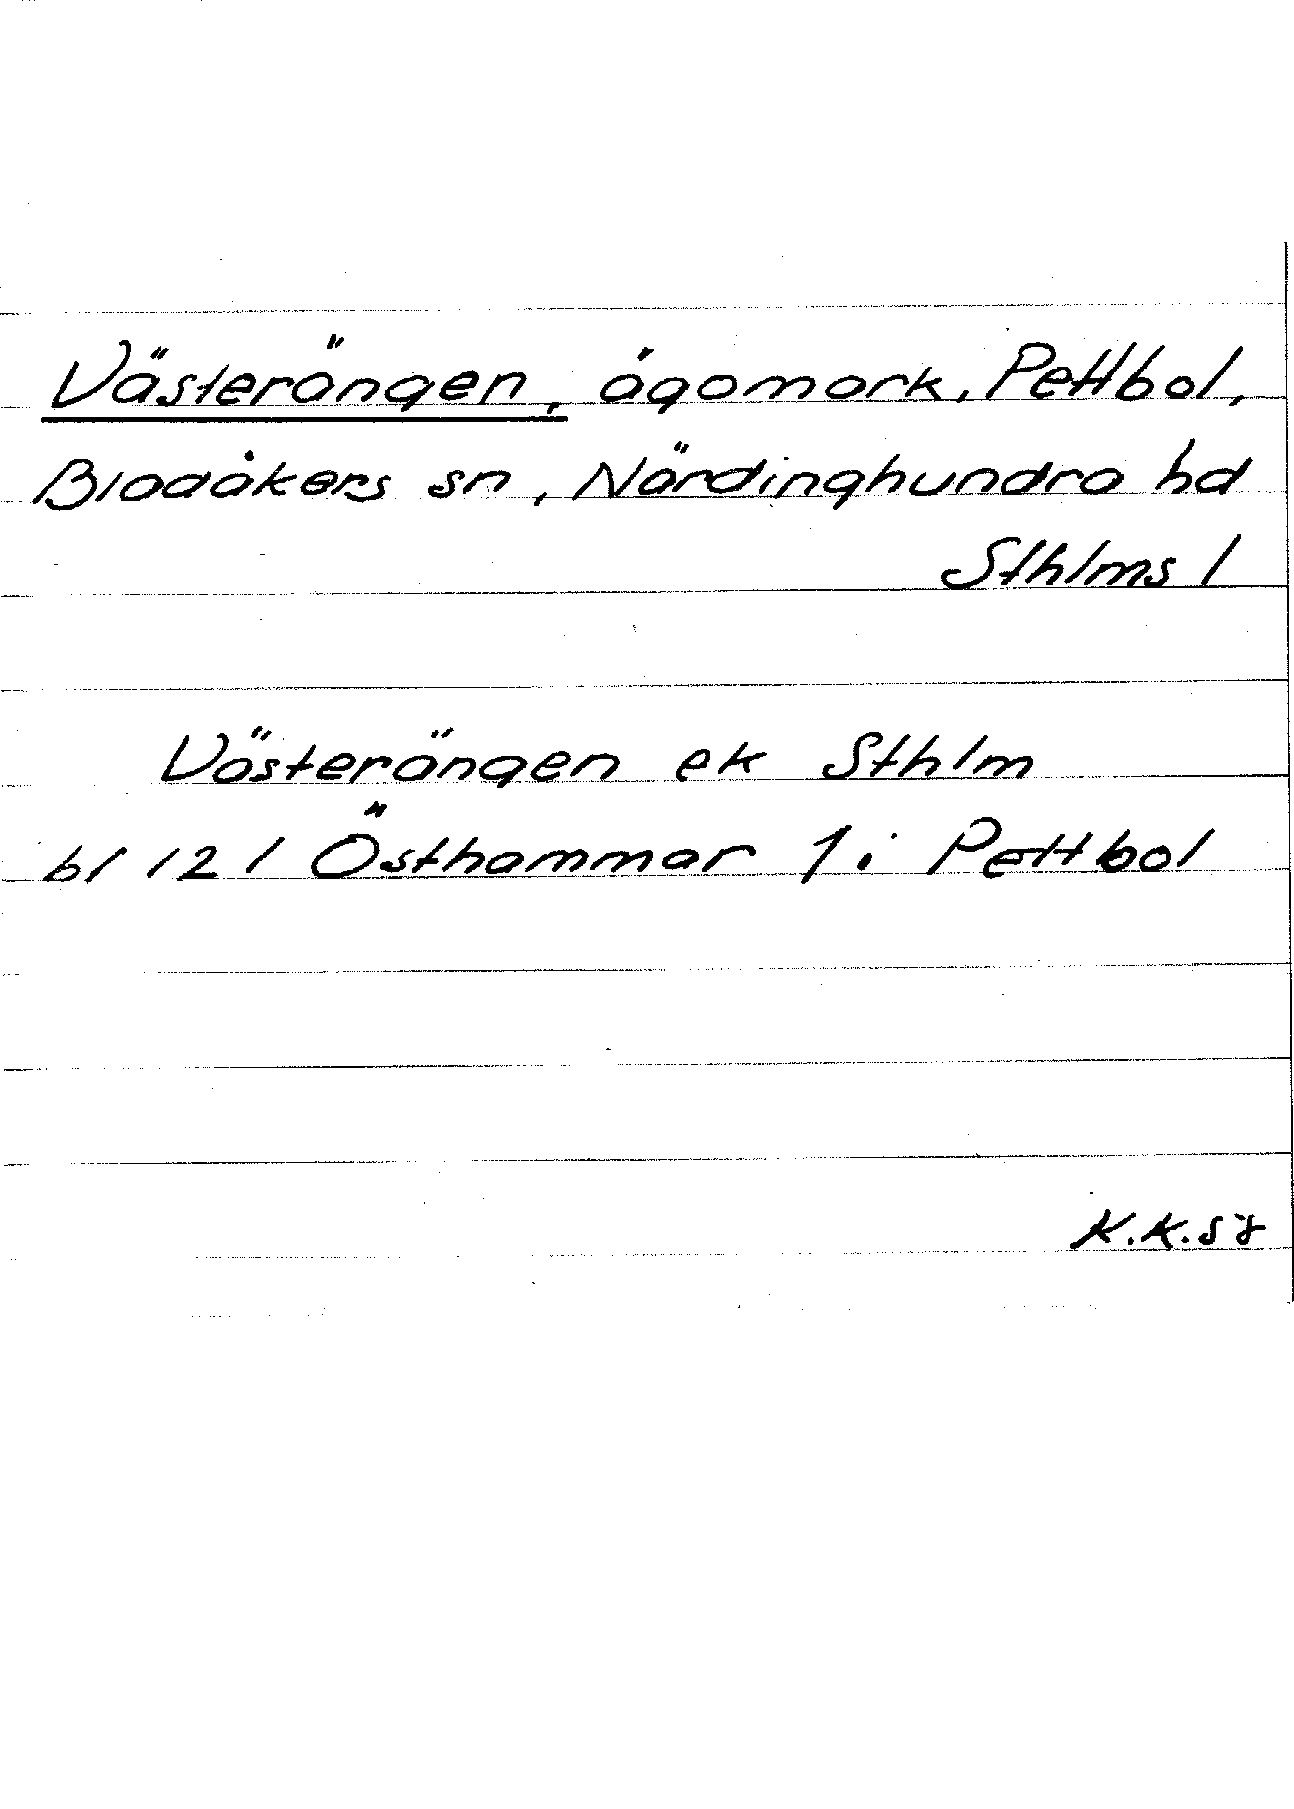 Västerängen, ägomark, Pettbol,
Bladåkers sn, Närdinghundra hd
Sthlms l
Västerängen ek Sthlm
bl 121 Östhammar 1 i Pettbol
K.K.58